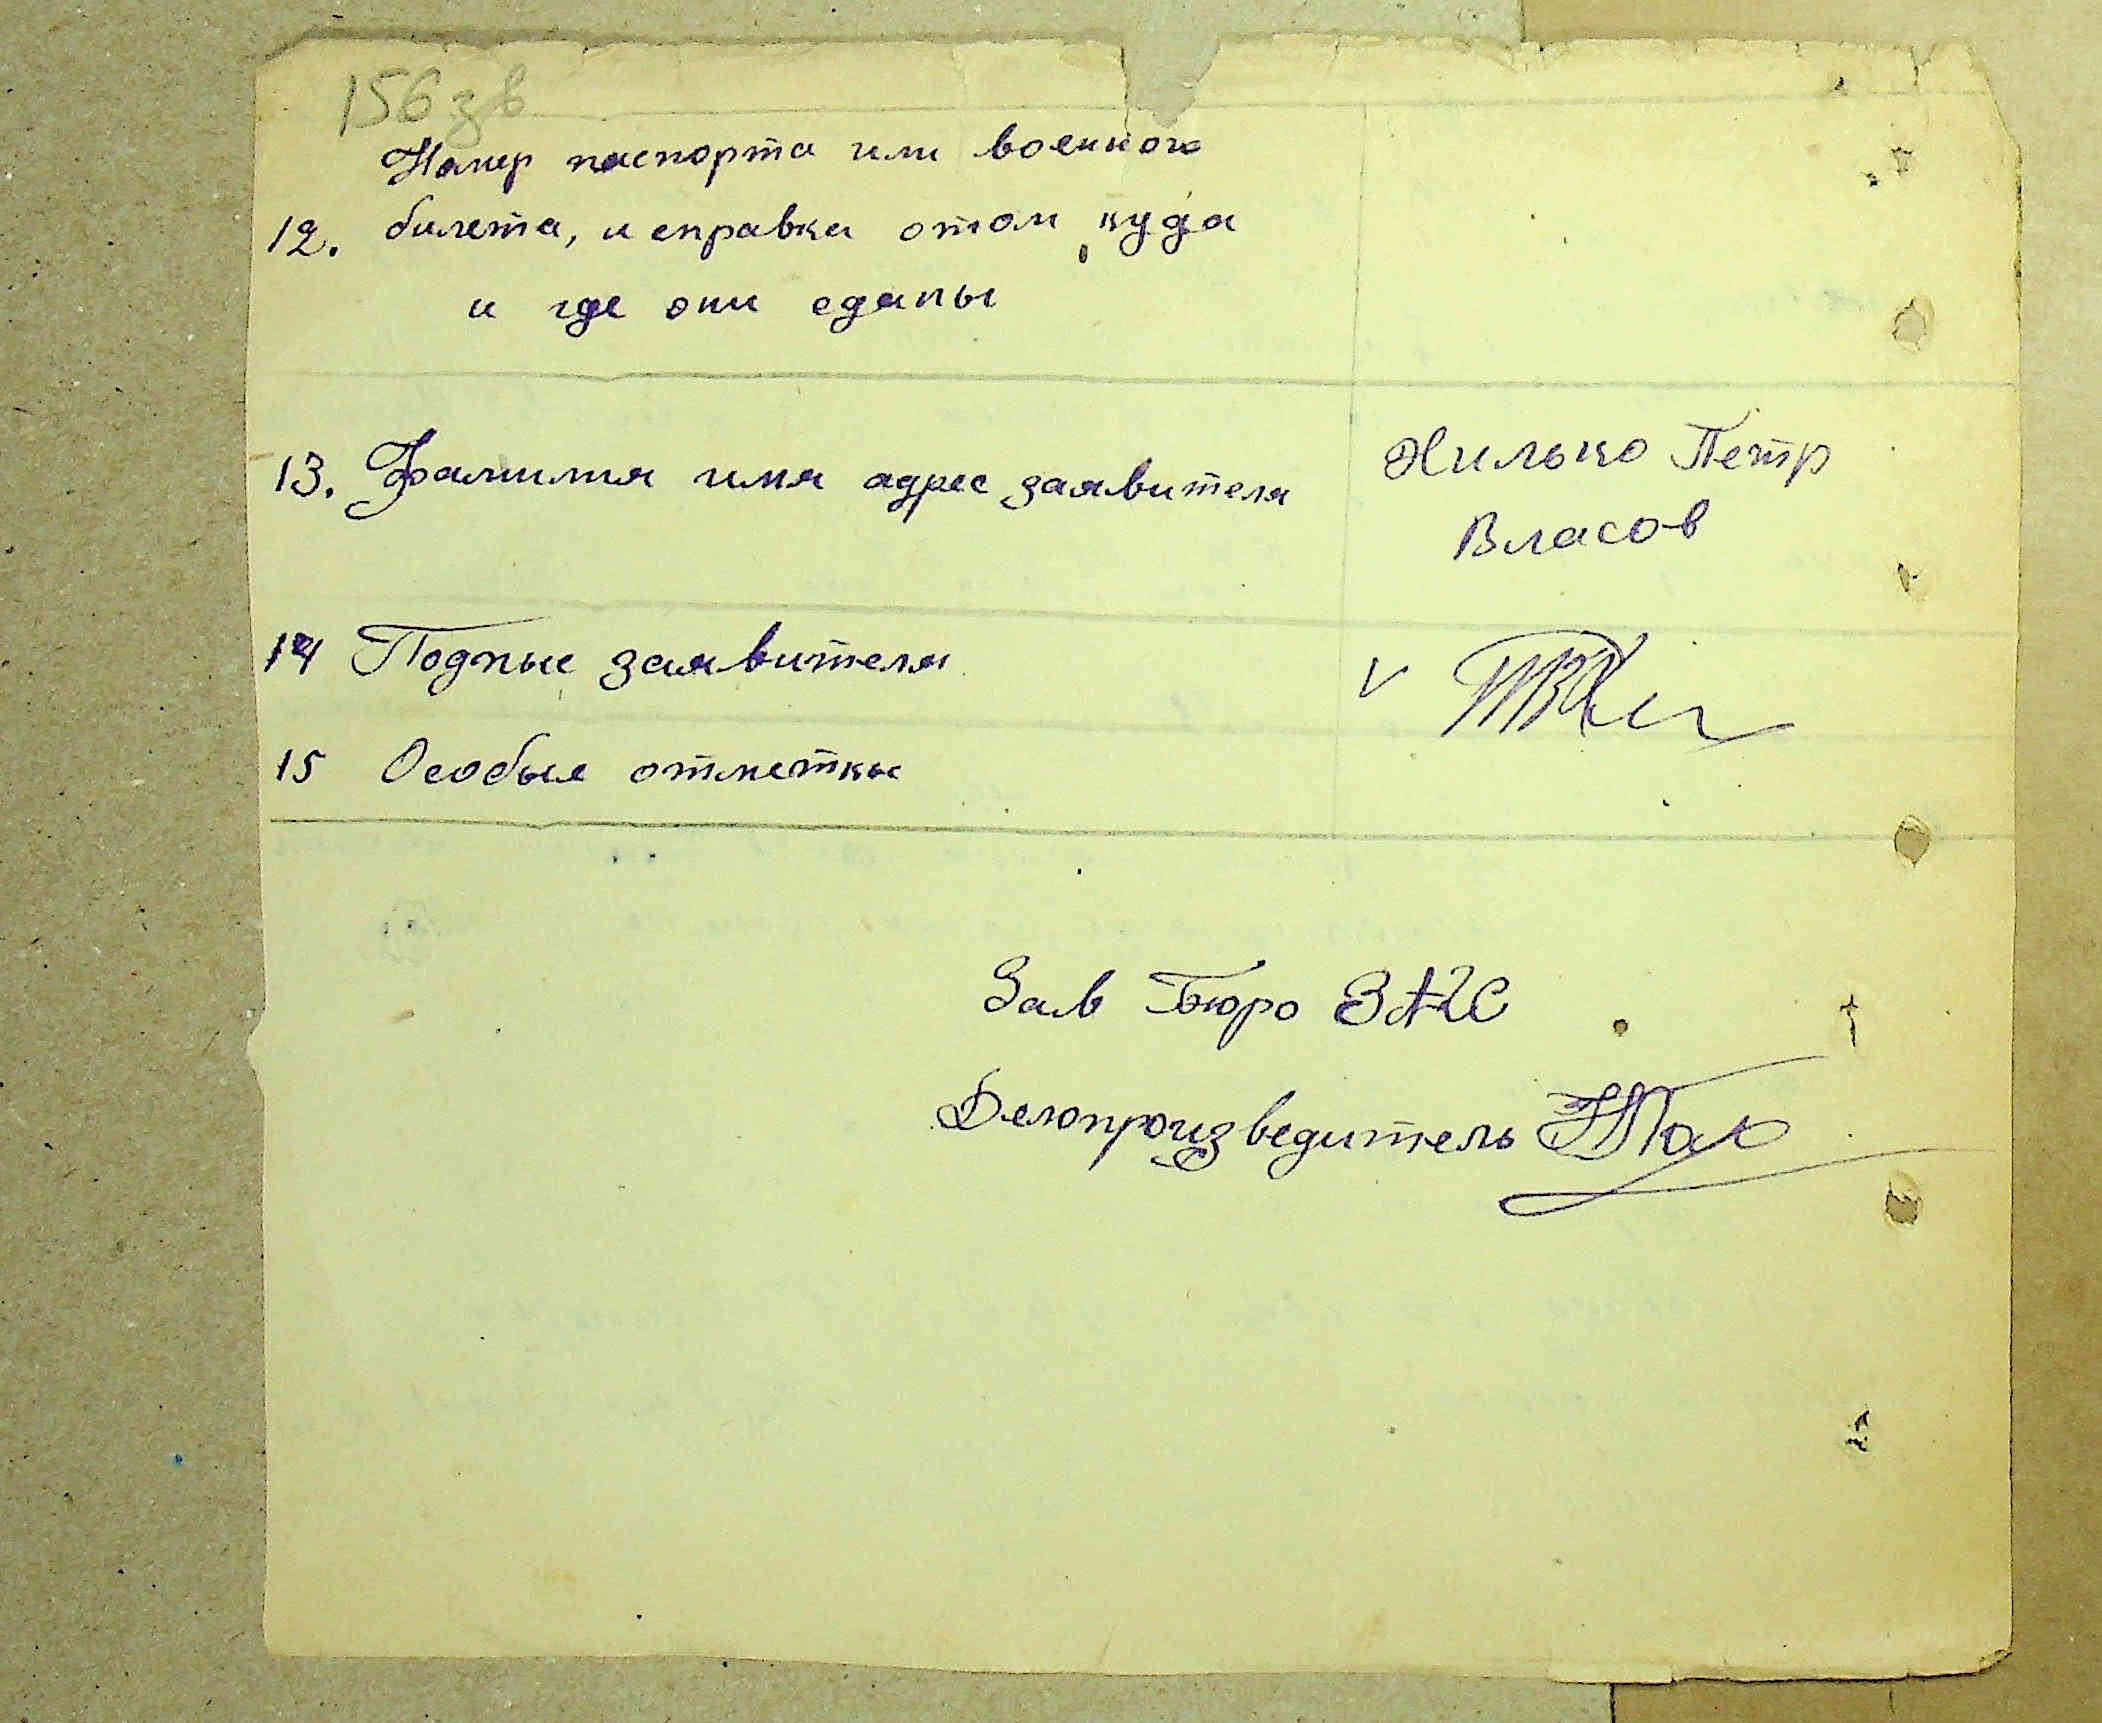 156 зв
Номер паспорта или военного
12. билета, и справки отом, куда
и где они сданы
13. Фамилия имя адрес заявителя
Хилько Петр
Власов
14 Подпис заявителя
V
15 Особые отметки
Зав Бюро ЗАГС
Делопроизводитель